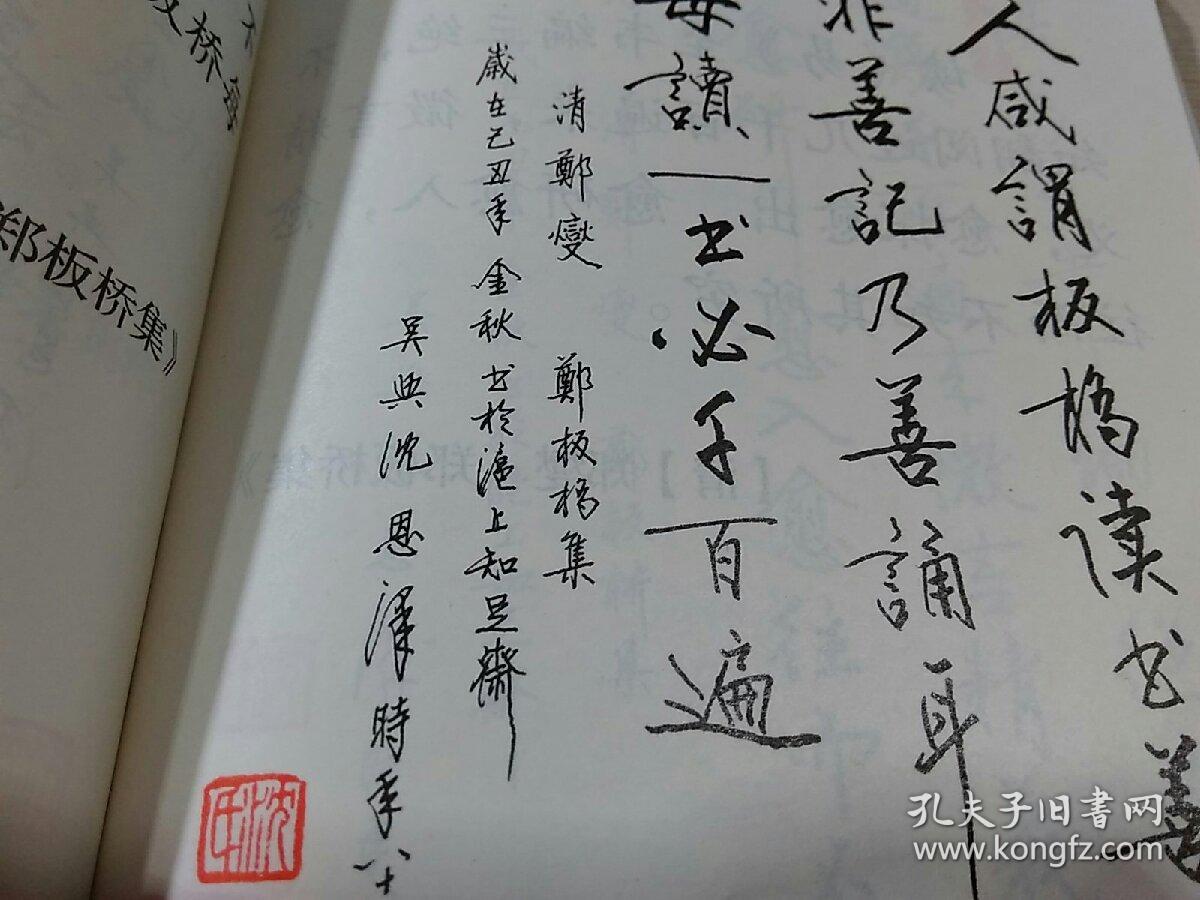 人咸謂板橋读书善
非善記乃善誦耳
每讀一书必千百遍
清鄭燮 鄭板橋集
歲在己丑年金秋书於滬上知足齋
吴興沈恩澤時年八十
板桥每
郑板桥集》
沈氏
孔夫子旧书网
www.kongfz.com